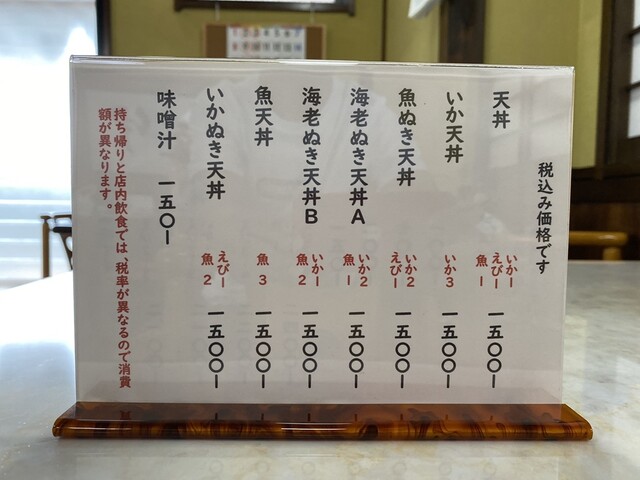 税込み価格です
天丼 いか一 えび一 魚一 一五〇〇ー
いか天丼 いか3 一五〇〇ー
魚ぬき天丼 いか2 えび一 一五〇〇ー
海老ぬき天丼A いか2 魚一 一五〇〇ー
海老ぬき天丼B いか一 魚2 一五〇〇ー
魚天丼 魚3 一五〇〇ー
いかぬき天丼 えび一 魚2 一五〇〇ー
味噌汁 一五〇ー
持ち帰りと店内飲食では、税率が異なるので消費
額が異なります。